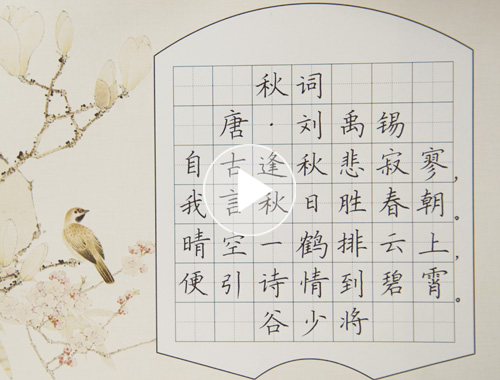 秋词
唐·刘禹锡
自古逢秋悲寂寥,
我言秋日胜春朝。
晴空一鹤排云上,
便引诗情到碧霄。
谷少将